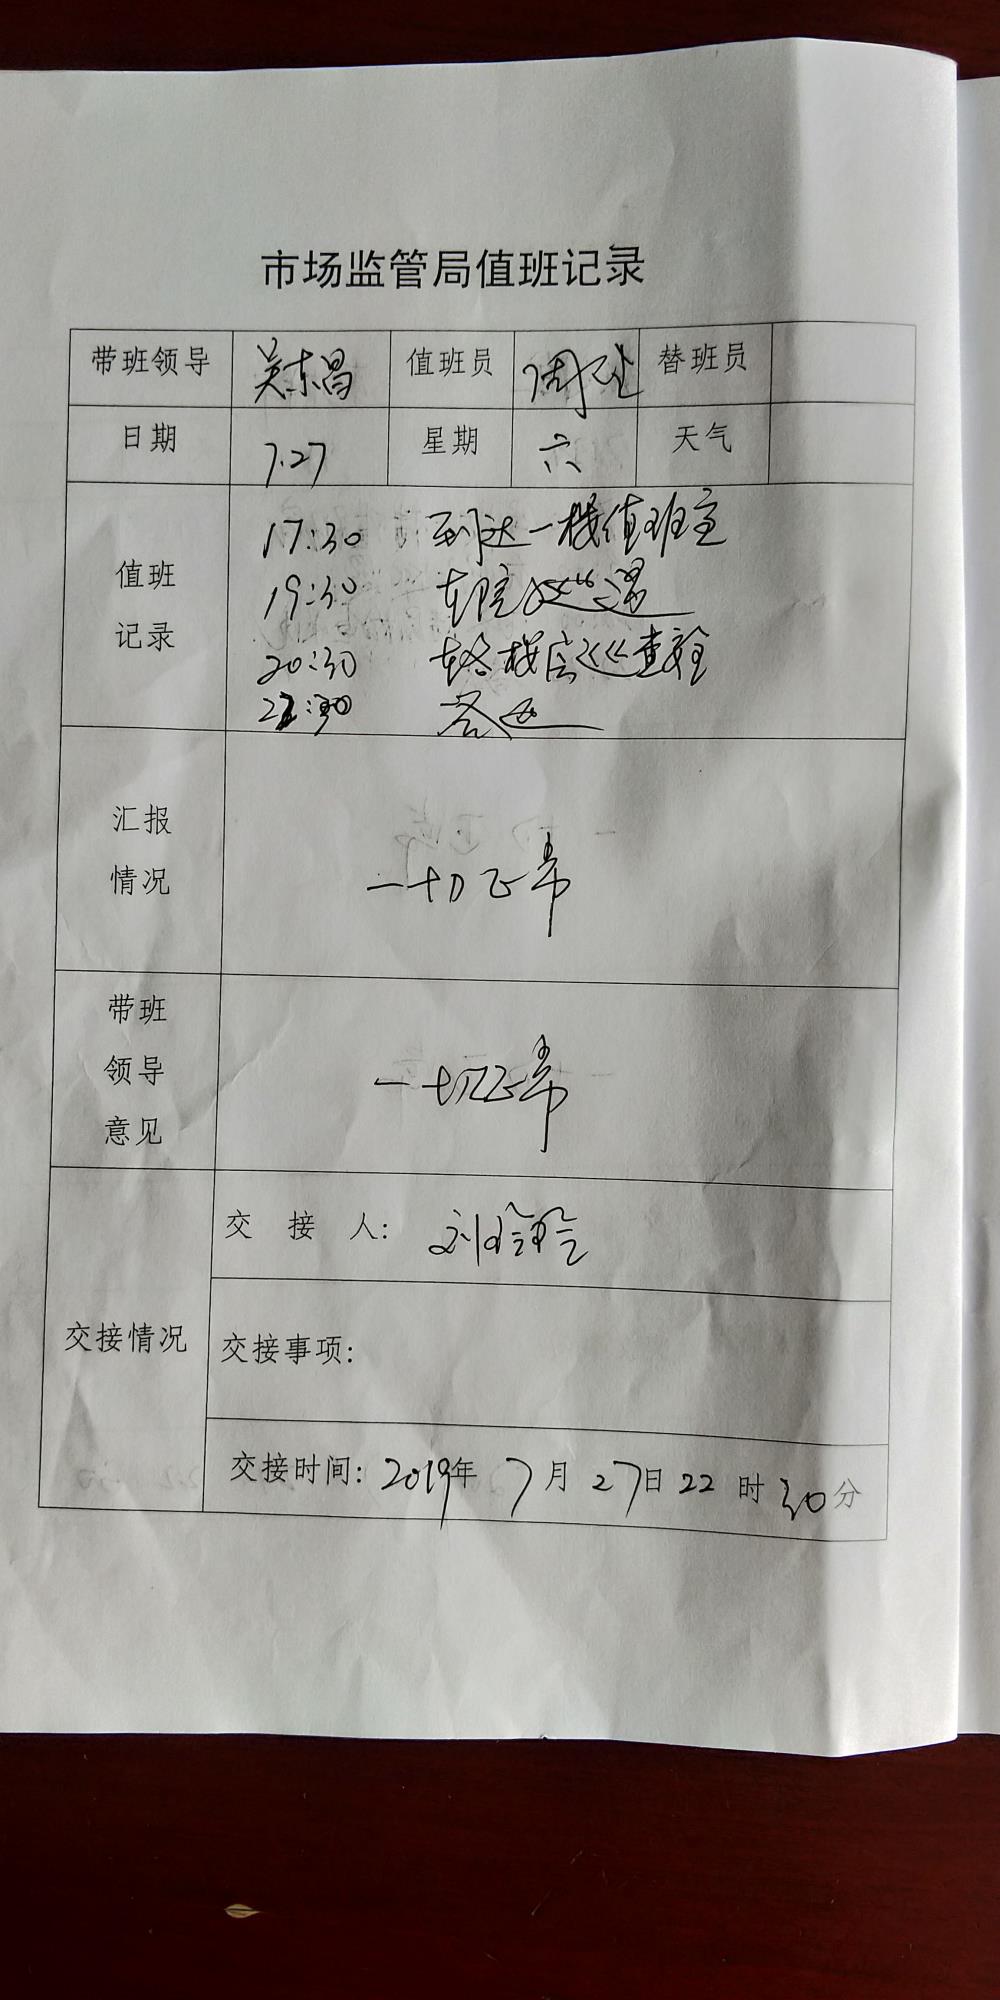 市场监管局值班记录
带班领导 吴东昌 值班员 周 替班员
日期 7.27 星期 六 天气
值班
记录
17:30 到达一楼值班室
19:30 在院巡逻
20:30 在各楼层巡查
22:30
汇报
情况
一切正常
带班
领导
意见
一切正常
交接情况
交 接 人: 刘玲玲
交接事项:
交接时间: 2019年 7月 27日 22时 30分